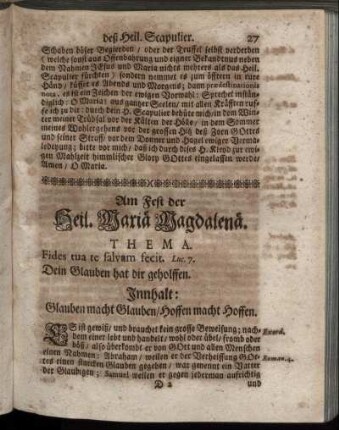 deß Heil. Scapulier. 27
Schaben böser Begirrden / oder der Teuffel selbst verderben
(welche sonst aus Offenbahrung und eigner Bekandtnus neben
dem Nahmen JEsus und Maria nichts mehrers als das Heil.
Scapulier fürchten / sondern nemmet es zum öfftern in eure
Händ / küsset es Abends und Morgens; dann prædestinationis
nota, es ist ein Zeichen der ewigen Vorwahl: Sprechet inbrün-
diglich: O Maria; aus gantzer Seelen / mit allen Kräfften ruf-
fe ich zu dir: durch dein H. Scapulier behüte mich in dem Win-
ter meiner Trübsal vor der Kälten der Höll, in dem Sommer
meines Wohlergehens vor der grossen Hitz deß Zorn GOttes
und seiner Straff / vor dem Donner und Hagel ewiger Verma-
ledeyung; bitte vor mich / daß ich durch dises H. Kleyd zur ewi-
gen Mahlzeit himmlischer Glory GOttes eingelassen werde
Amen / O Maria.
Am Fest der
Heil. Mariä Magdalenä.
THEMA.
Fides tua te salvam fecit. Luc. 7.
Dein Glauben hat dir geholffen.
Innhalt:
Glauben macht Glauben / Hoffen macht Hoffen.
ES ist gewiß / und brauchet kein grosse Beweisung; nach-
dem einer lebt und handelt / wohl oder übel / fromb oder
böß / also überkombt er von GOtt und allen Menschen
einen Nahmen: Abraham / weilen er der Verheissung GOt- Roman. 4.
tes einen starcken Glauben gegeben / war genennt ein Vatter
der Glaubigen; Samuel weilen er gegen jederman aufrichtig
D 2 und